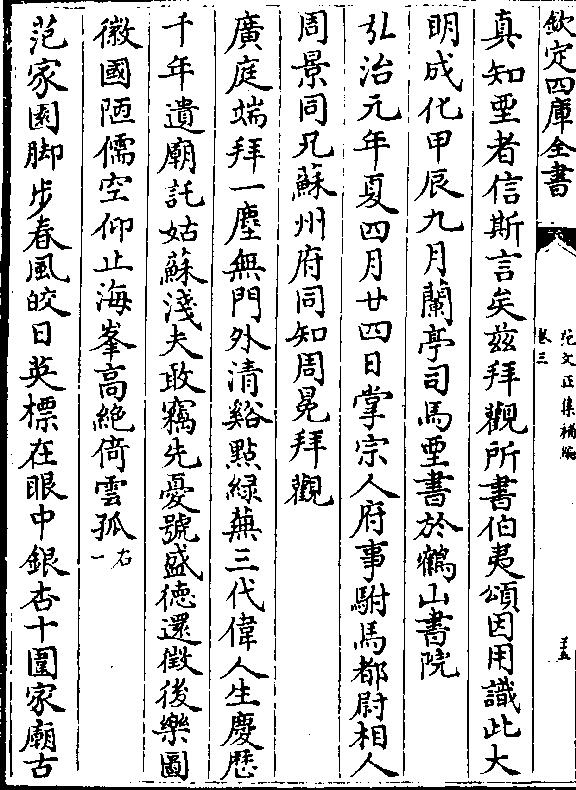 欽定四庫全書
范文正集補編
卷三
五
真知聖者信斯言矣茲拜觀所書伯夷頌因用識此大
明成化甲辰九月蘭亭司馬垔書於鶴山書院
弘治元年夏四月廿四日掌宗人府事駙馬都尉相人
周景同兄蘇州府同知周冕拜觀
廣庭端拜一塵無門外清谿點綠蕪三代偉人生慶歷
千年遺廟託姑蘇淺夫敢竊先憂號盛德還徴後樂圖
徽國陋儒空仰止海峯高絶倚雲孤右一
范家園脚步春風皎日英標在眼中銀杏十圍家廟古